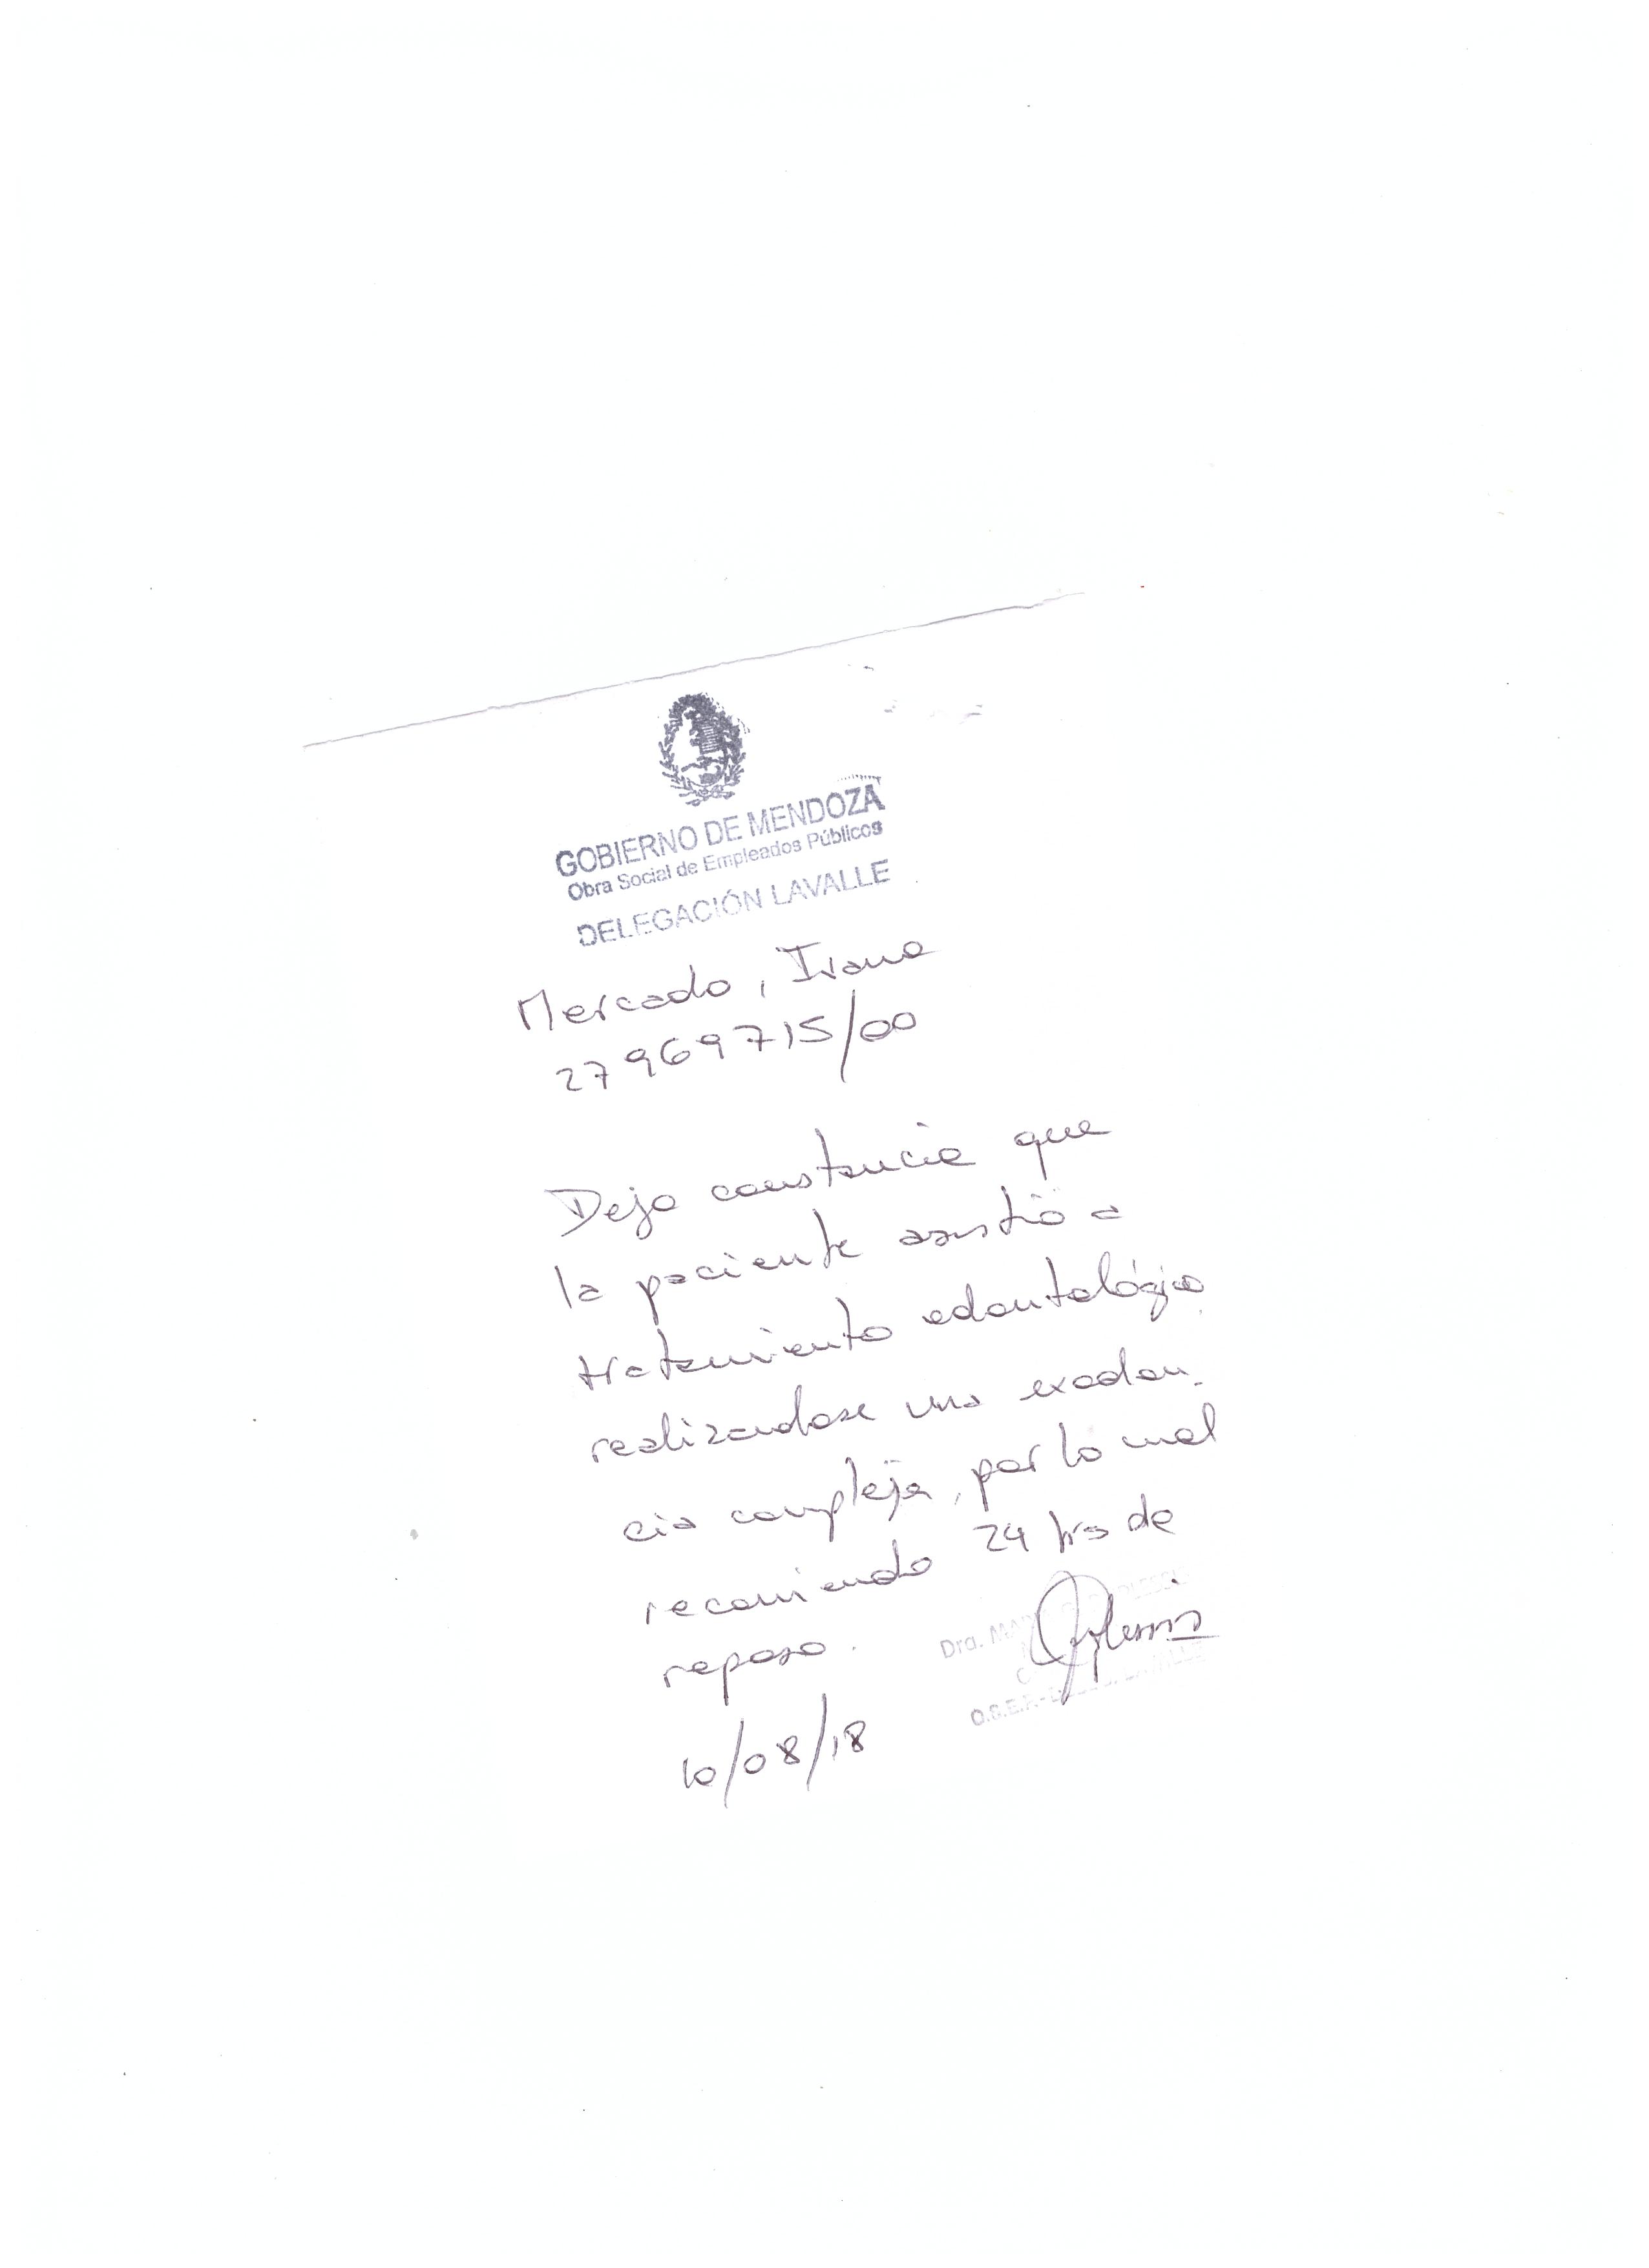 GOBIERNO DE MENDOZA
Obra Social de Empleados Públicos
DELEGACIÓN LAVALLE
Mercado, Ivana
27969715/00
Dejo constancia que
la paciente asistió a
tratamiento odontológico
realizandose una exodon-
cia compleja, por lo cual
recomiendo 24 hrs de
reposo.
Dra.
O.S.E.P.-
10/08/18